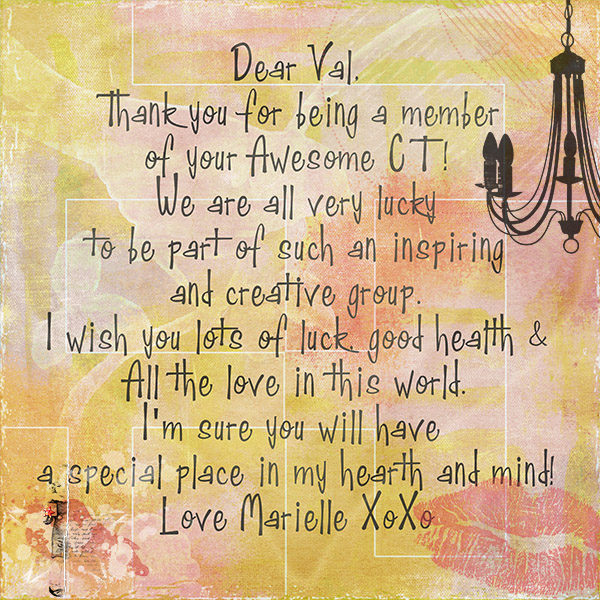 Dear Val,
Thank you for being a member
of your Awesome CT!
We are all very lucky
to be part of such an inspiring
and creative group.
I wish you lots of luck, good healTh &
All the love in this world.
I'm sure you will have
a special place in my hearth and mind!
Love Marielle XoXo